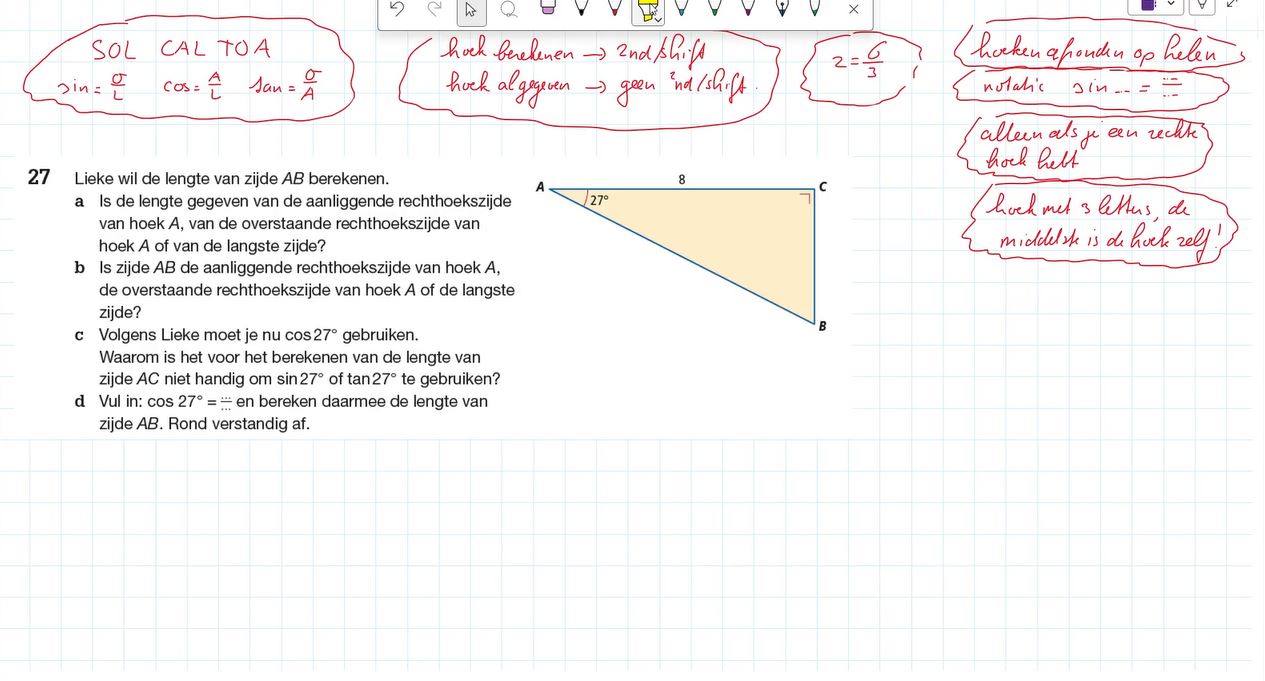 SOL CAL TOA
sin = O/L cos = A/L tan = O/A
hoek berekenen → 2nd/shift
hoek al gegeven → geen 2nd/shift.
2 = 6/3
hoeken afronden op helen
notatie sin ... = .../...
alleen als je een rechte
hoek hebt
hoek met 3 letters, de
middelste is de hoek zelf!
27 Lieke wil de lengte van zijde AB berekenen.
a Is de lengte gegeven van de aanliggende rechthoekszijde
van hoek A, van de overstaande rechthoekszijde van
hoek A of van de langste zijde?
b Is zijde AB de aanliggende rechthoekszijde van hoek A,
de overstaande rechthoekszijde van hoek A of de langste
zijde?
c Volgens Lieke moet je nu cos 27° gebruiken.
Waarom is het voor het berekenen van de lengte van
zijde AC niet handig om sin 27° of tan 27° te gebruiken?
d Vul in: cos 27° = .../... en bereken daarmee de lengte van
zijde AB. Rond verstandig af.
A 8 C
27°
B